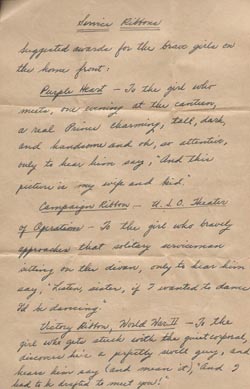 Service Ribbons
Suggested awards for the brave girls on
the home front:
Purple Heart – To the girl who
meets, one evening at the canteen,
a real Prince Charming, tall, dark,
and handsome and oh, so attentive,
only to hear him say, "And this
picture is my wife and kid."
Campaign Ribbon – U.S.O. Theater
of Operation – To the girl who bravely
approaches that solitary serviceman
sitting on the divan, only to hear him
say, "Listen, sister, if I wanted to dance
I'd be dancing"
Victory Ribbon, World War II – To the
girl who gets stuck with the quiet corporal,
discovers he's a perfectly swell guy, and
hears him say (and mean it), "And I
had to be drafted to meet you!"